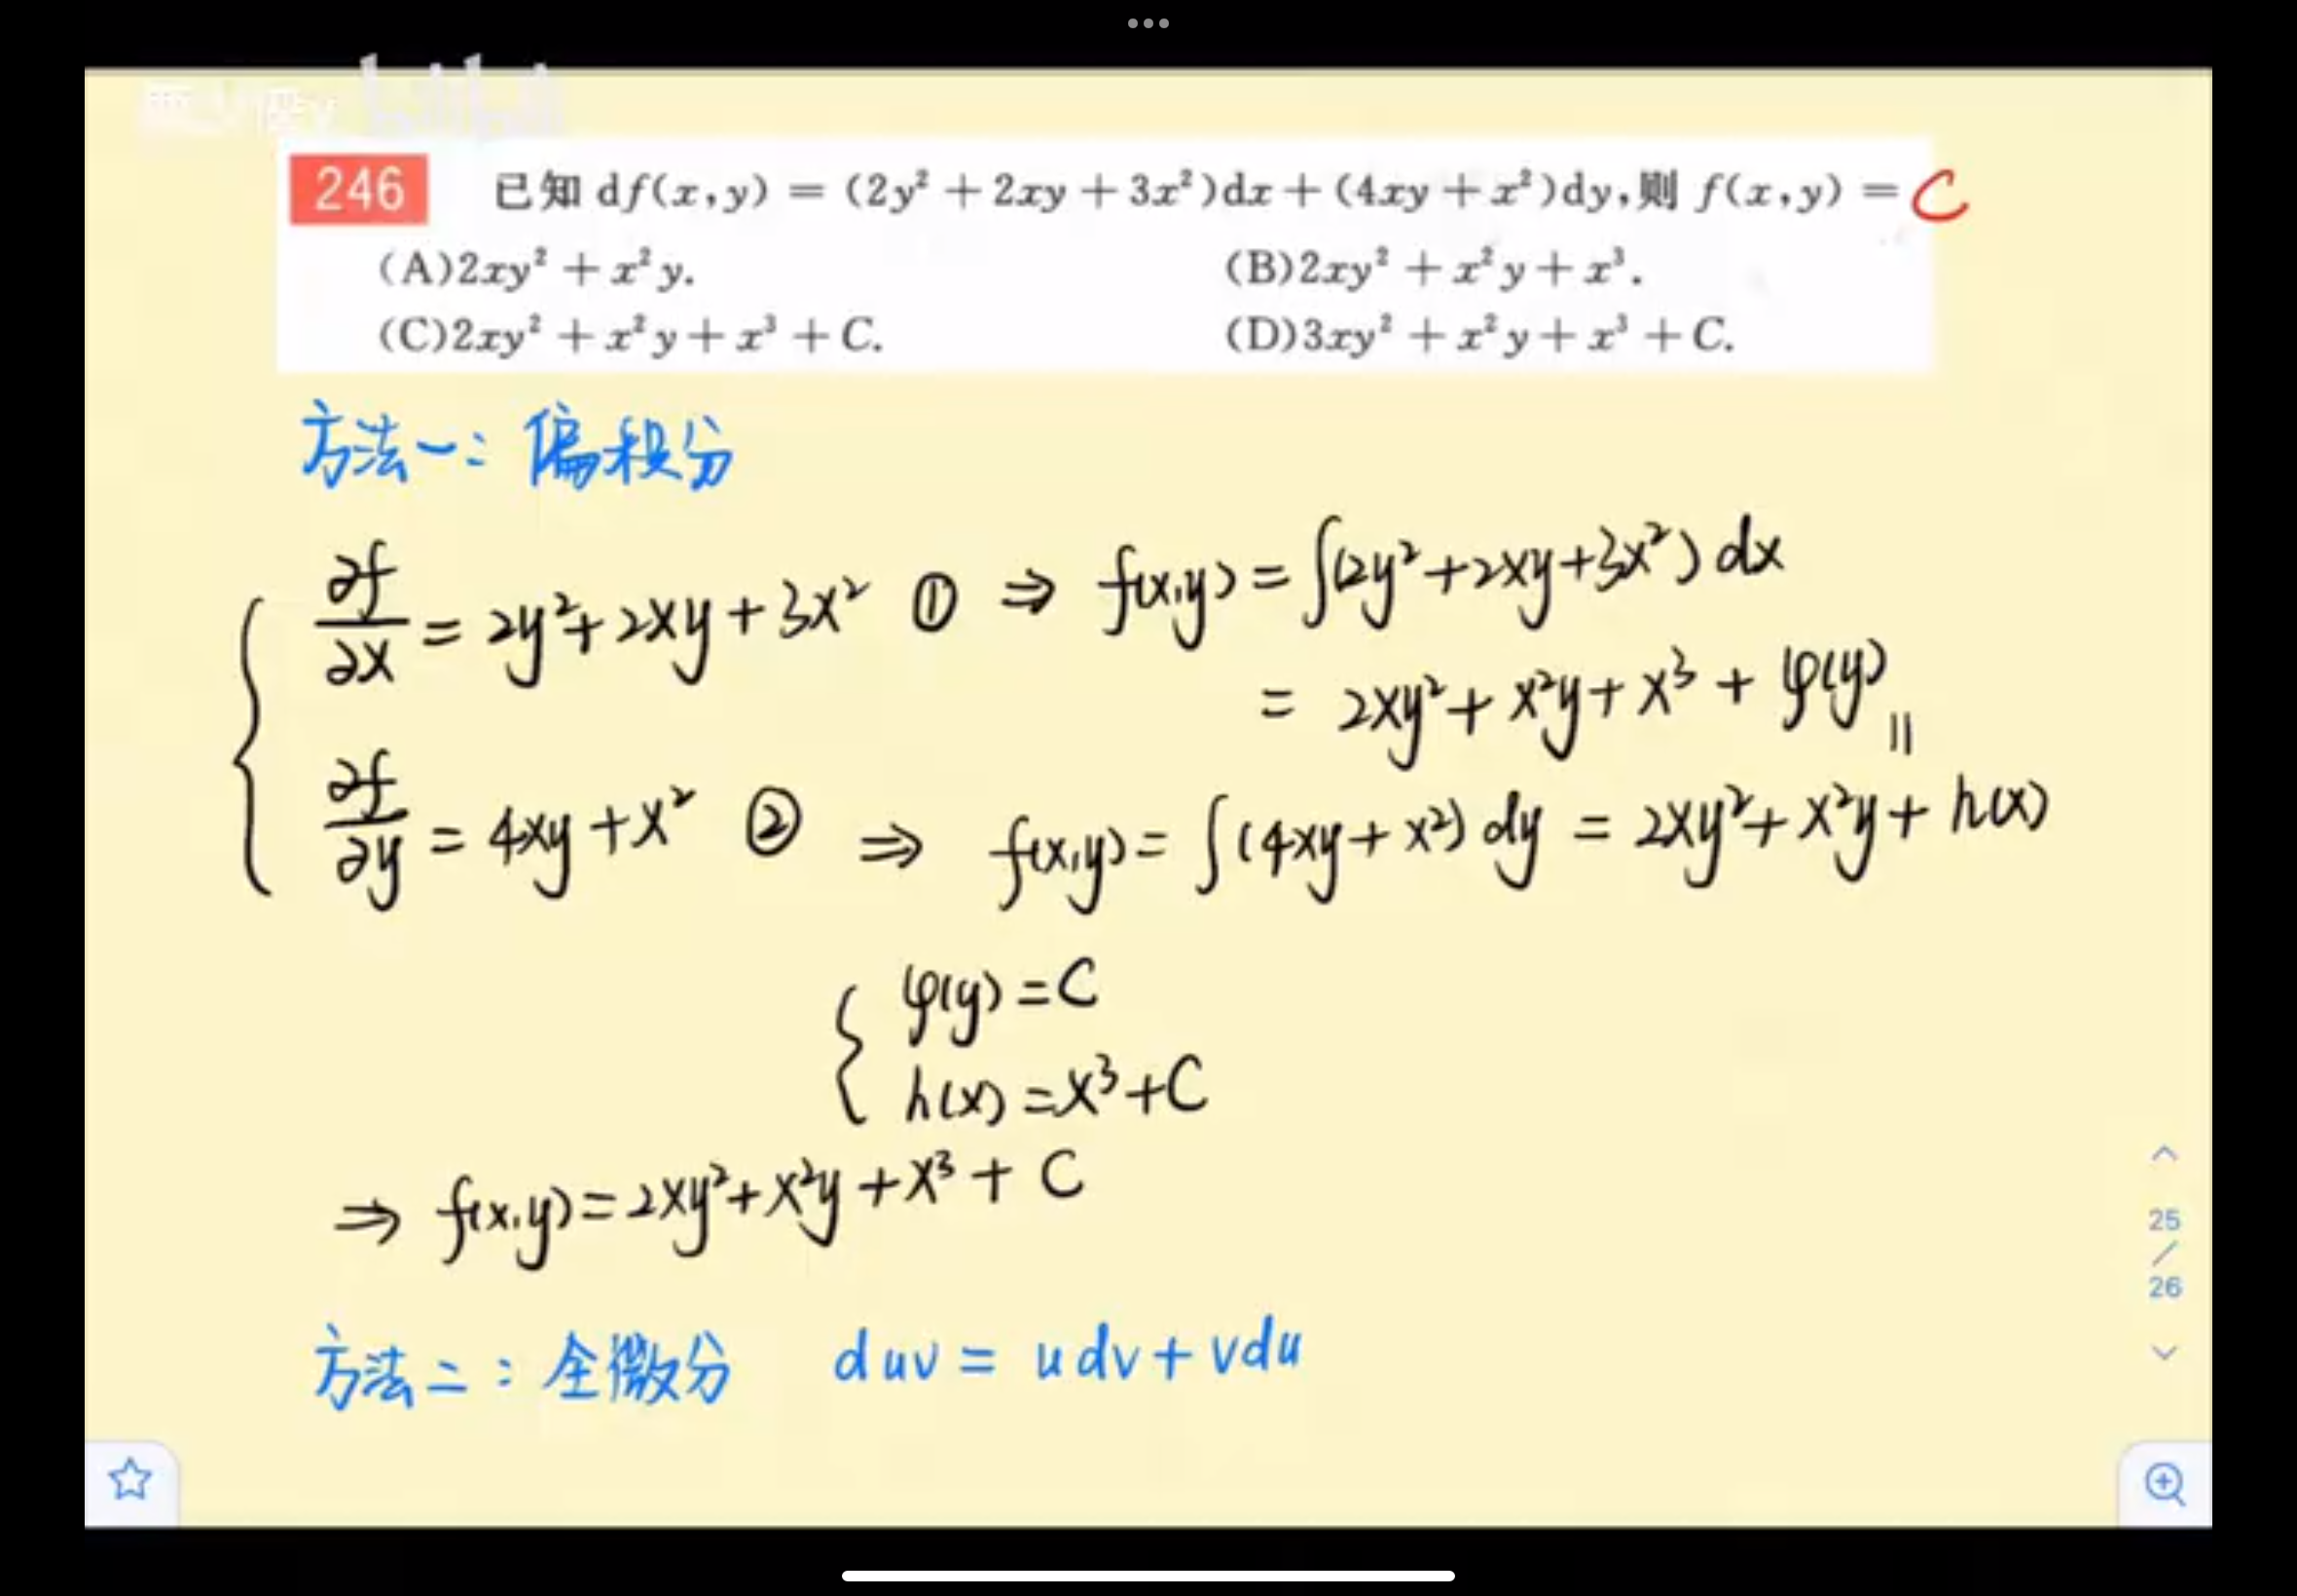 246 已知 df(x,y) = (2y² + 2xy + 3x²)dx + (4xy + x²)dy,则 f(x,y) = C
(A)2xy² + x²y. (B)2xy² + x²y + x³.
(C)2xy² + x²y + x³ + C. (D)3xy² + x²y + x³ + C.
方法一: 偏积分
∂f/∂x = 2y²+2xy+3x² ① ⇒ f(x,y) = ∫(2y²+2xy+3x²)dx
= 2xy²+x²y+x³+φ(y)
||
∂f/∂y = 4xy+x² ② ⇒ f(x,y) = ∫(4xy+x²)dy = 2xy²+x²y+h(x)
{ φ(y) = C
h(x) = x³+C
⇒ f(x,y) = 2xy²+x²y+x³+C
方法二: 全微分 duv = udv+vdu
25
/
26